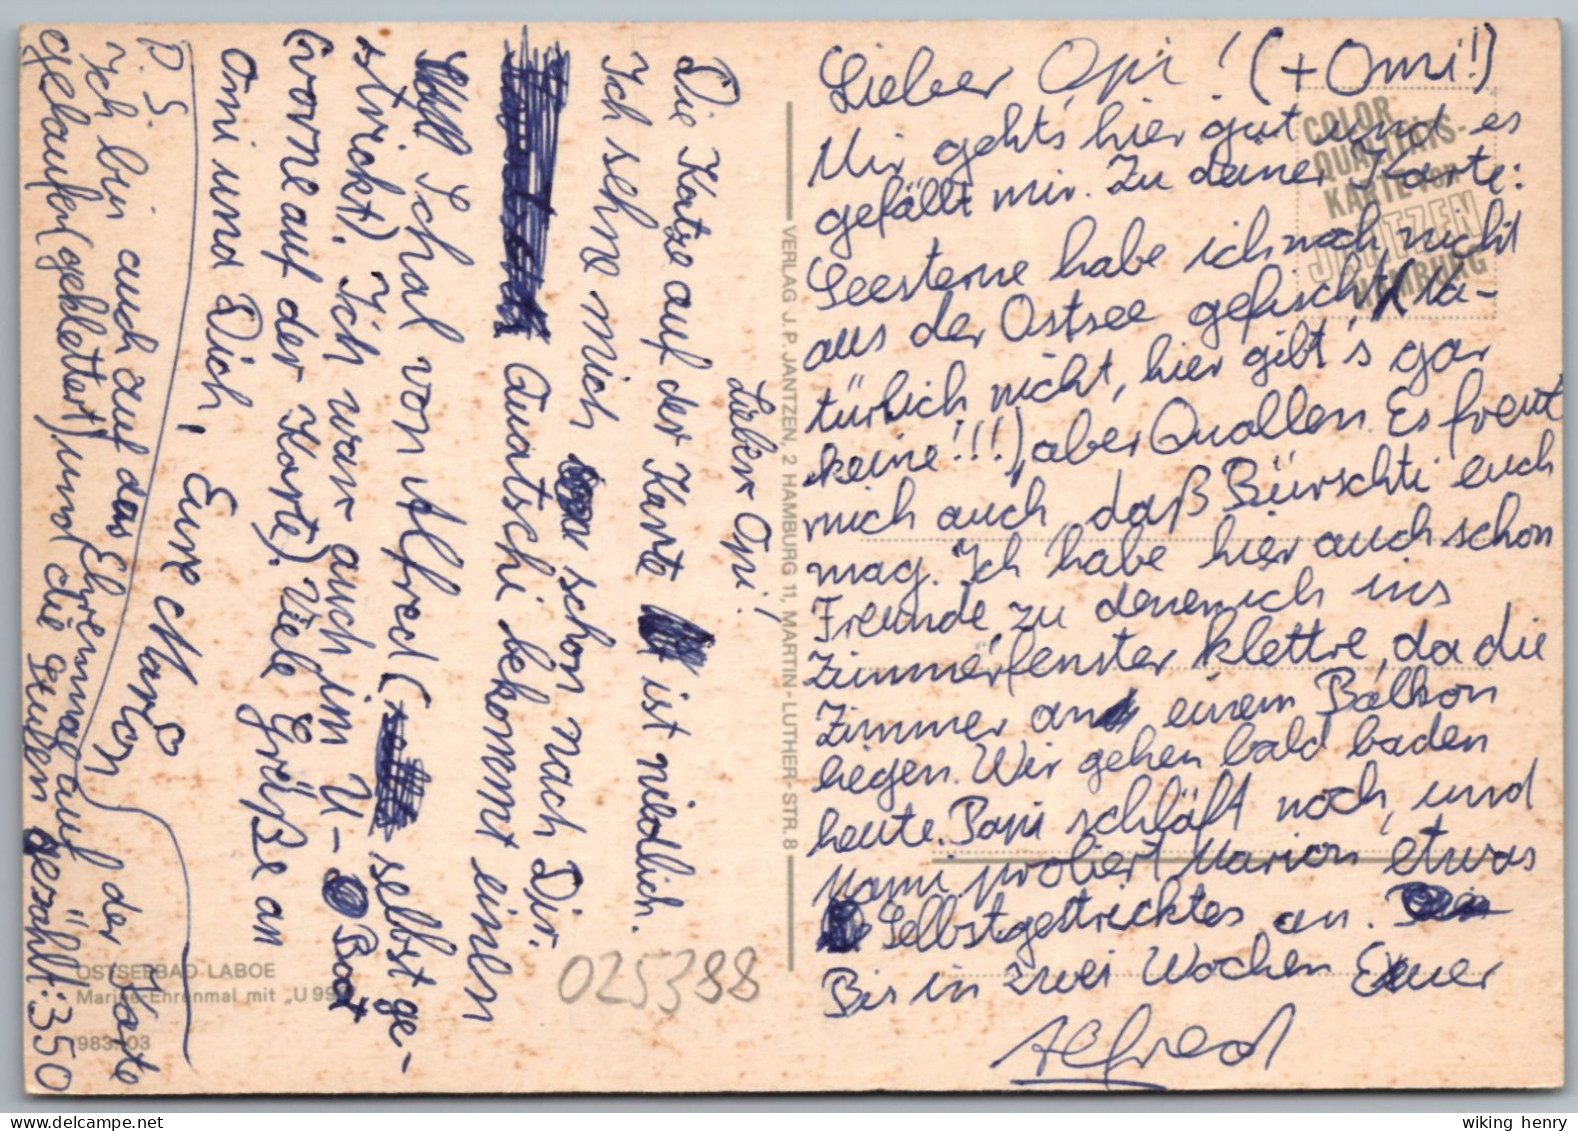 Lieber Opi! (+Omi!)
Mir geht's hier gut und es
gefällt mir. Zu deiner Karte:
Seesterne habe ich noch nicht
aus der Ostsee gefischt (Na-
türlich nicht, hier gibt's gar
keine!!!), aber Quallen. Es freut
mich auch, daß Bürschti euch
mag. Ich habe hier auch schon
Freunde zu denen ich ins
Zimmerfenster klettre, da die
Zimmer an einem Balkon
liegen. Wir gehen bald baden
heute. Papi schläft noch, und
Mami probiert Marion etwas
Selbstgestricktes an.
Bis in zwei Wochen Euer
Alfred
COLOR
QUALITÄTS-
KARTE von
JANTZEN
HAMBURG
VERLAG J. P. JANTZEN, 2 HAMBURG 11, MARTIN-LUTHER-STR. 8
Lieber Opi!
Die Katze auf der Karte ist niedlich.
Ich sehne mich schon nach Dir.
Quatschi bekommt einen
Schal von Alfred (selbst ge-
strickt). Ich war auch im U-Boot
(vorne auf der Karte). Viele Grüße an
Omi und Dich, Eure Marion
P.S.
Ich bin auch auf das Ehrenmal auf der Karte
gelaufen (geklettert) und die Stufen gezählt: 350
OSTSEEBAD LABOE
Marine-Ehrenmal mit „U 995"
025388
wiking henry